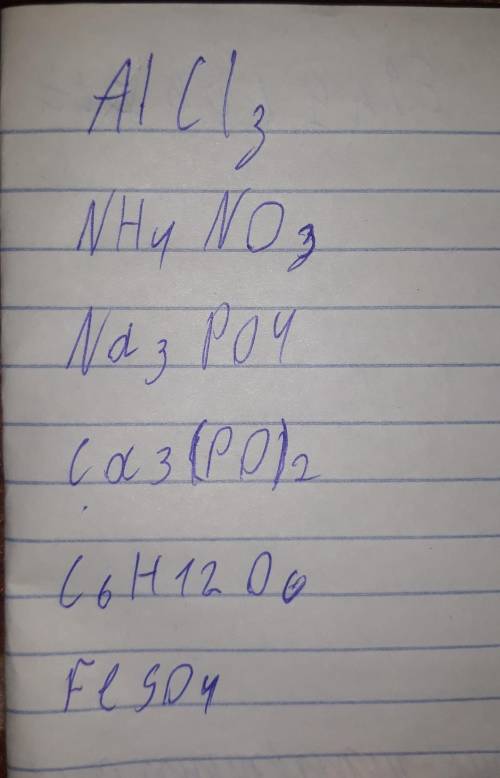 AlCl3
NH4 NO3
Na3 PO4
Ca3(PO)2
C6H12O6
FeSO4